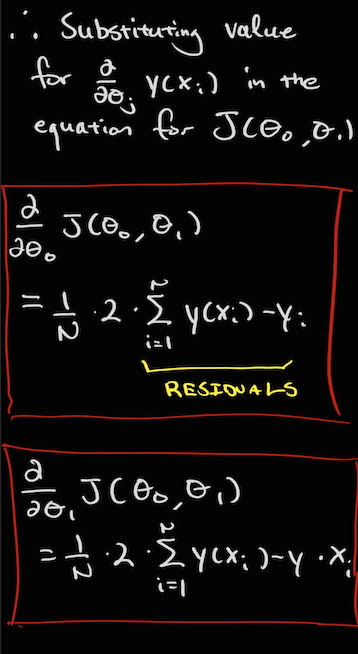 ∴ Substituting value
for ∂/∂θⱼ y(xᵢ) in the
equation for J(θ₀, θ₁)
∂/∂θ₀ J(θ₀, θ₁)
= 1/N · 2 · ∑ᵢ₌₁ᴺ y(xᵢ) - yᵢ
RESIDUALS
∂/∂θ₁ J(θ₀, θ₁)
= 1/N · 2 · ∑ᵢ₌₁ᴺ y(xᵢ) - y · xᵢ